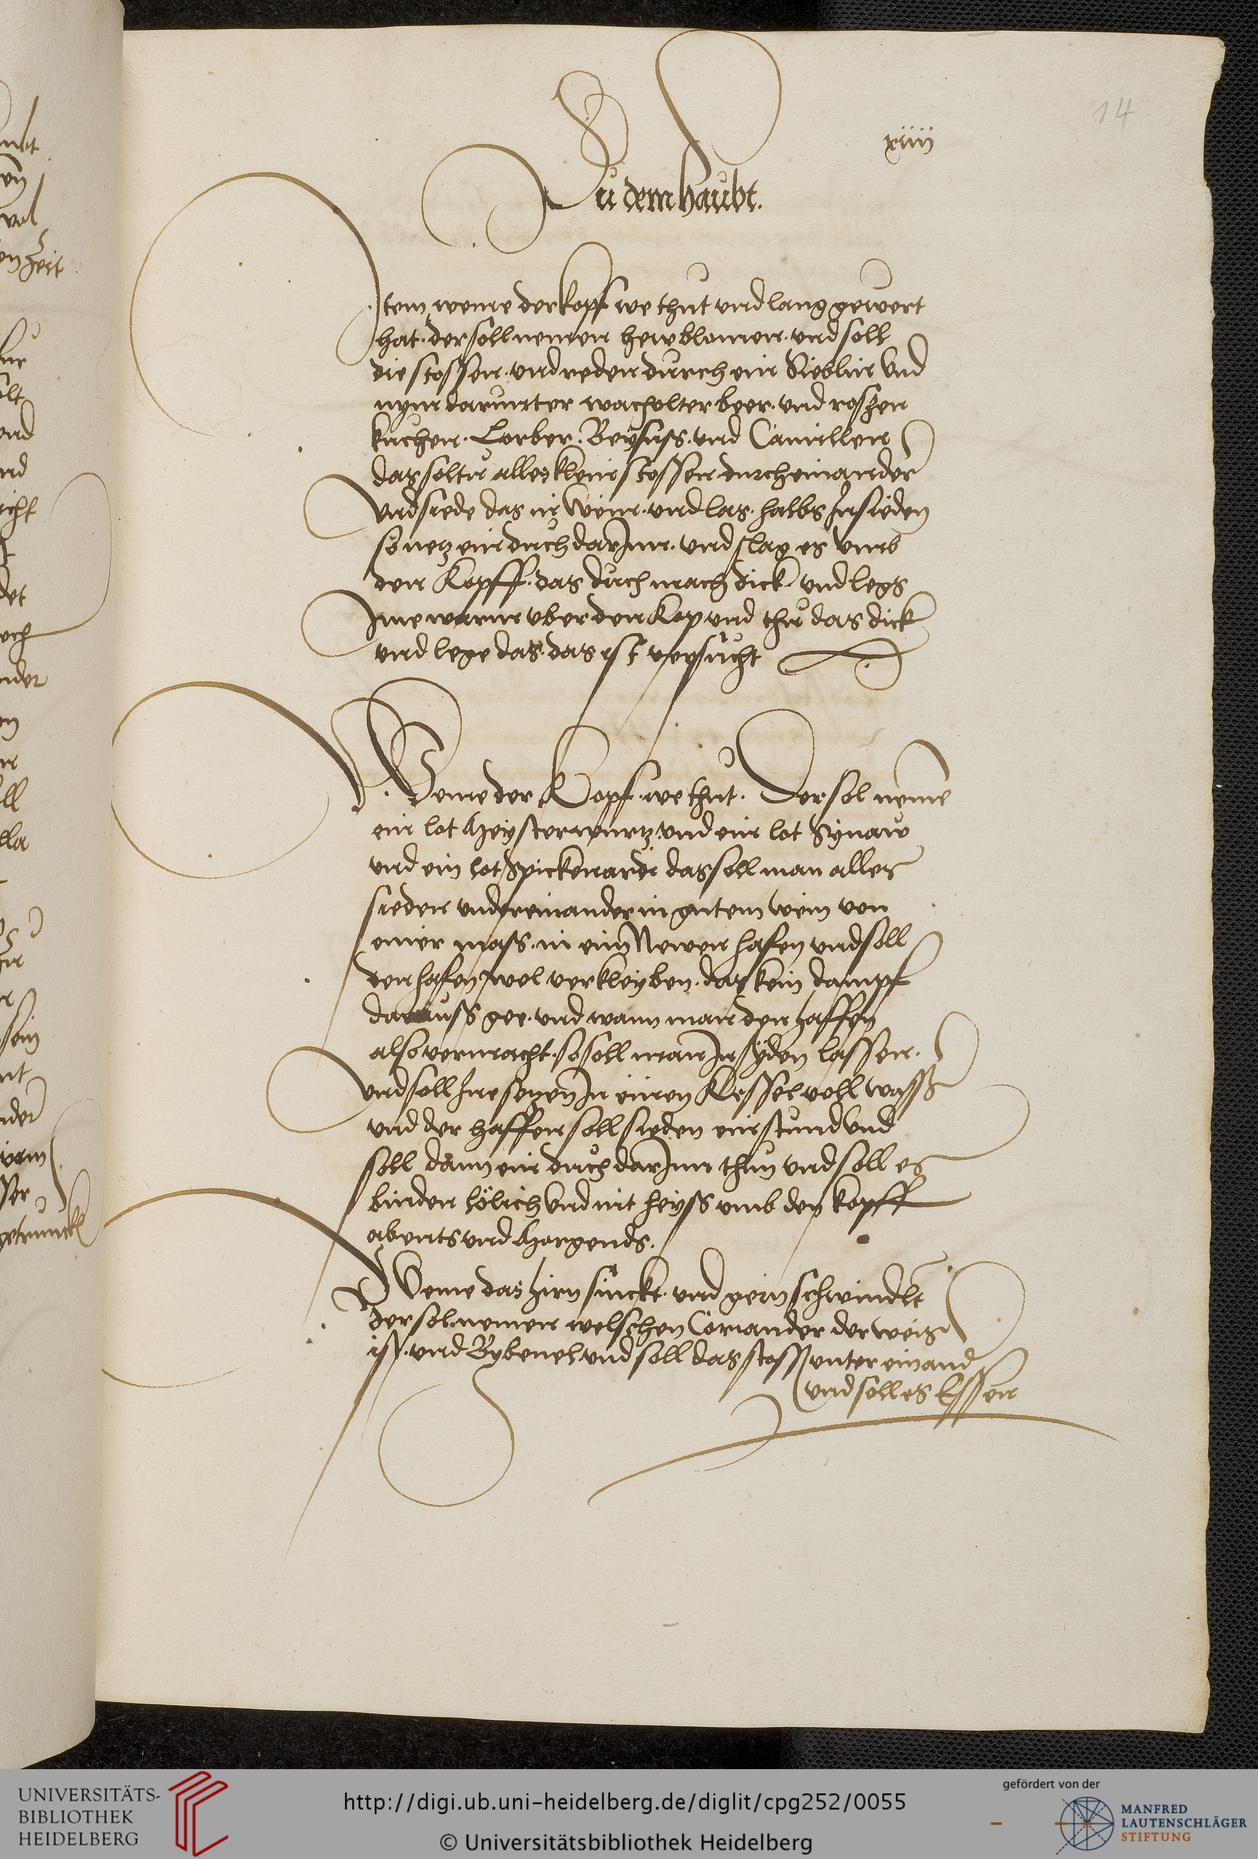 14
xiiii
Zu dem haubt.
Item weme der kopf we thut vnd lang gewert
hat. der soll nemen hew blomen. vnd soll
die stossen. vnd reden durch ein Sieblin vnd
nym darunter wacholter beer. vnd roszen
kuchen. Lorber. Beyfuss. vnd Camillen
das soltu alles klein stossen durcheinander
vnd siede das in Wein. vnd las. halbs Insieden
so netz ein duch darInn. vnd slag es vmb
den Kopff. das duch mach dick. vnd legs
Ime warm vber den Kop vnd thu das dick
vnd lege das. das ist versucht
Weme der Kopf. we thut. Der sol neme
ein lot Meysterwurtz vnd ein lot Synaw
vnd ein lot Spickenardi das soll man alles
sieden vndereinander in gutem wein von
einer mass. in eim Newen hafen vnd soll
den hafen wol verkleyben. das kein dampf
daruss gee. vnd wann man den haffen
also vermacht. so soll man In syden lassen.
vnd soll Ine setzen In einen Kessel voll wasser
vnd der haffen soll sieden ein stund vnd
soll dann ein duch darInn thun vnd soll es
binden lölich vnd nit heyss vmb den kopff
abents vnd Morgends.
Weme das hirn sinckt. vnd gern schwindlt
Der sol. nemen welschen Coriander der weis
ist. vnd Bybenel. vnd soll das stoss unter einand
vnd soll es Essen
UNIVERSITÄTS-
BIBLIOTHEK
HEIDELBERG
http://digi.ub.uni-heidelberg.de/diglit/cpg252/0055
© Universitätsbibliothek Heidelberg
gefördert von der
MANFRED
LAUTENSCHLÄGER
STIFTUNG